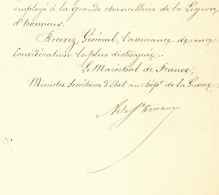 employé à la grande chancellerie de la Légion
d'honneur.
Recevez, Général, l'assurance de ma
considération la plus distinguée.
Le Maréchal de France,
Ministre Secrétaire d'État au dép.t de la Guerre